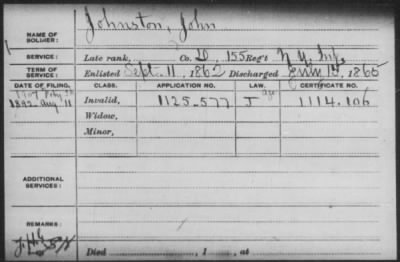 NAME OF SOLDIER: Johnston, John
SERVICE: Late rank, Co. D, 155 Reg't N.Y. Inf.
TERM OF SERVICE: Enlisted Sept. 11, 1862 Discharged 15, 1865
DATE OF FILING. CLASS. APPLICATION NO. LAW. CERTIFICATE NO.
1907
1892 Aug 11 Invalid, 1125-577 J 1114.106
Widow,
Minor,
ADDITIONAL SERVICES:
REMARKS:
Died , 1 , at